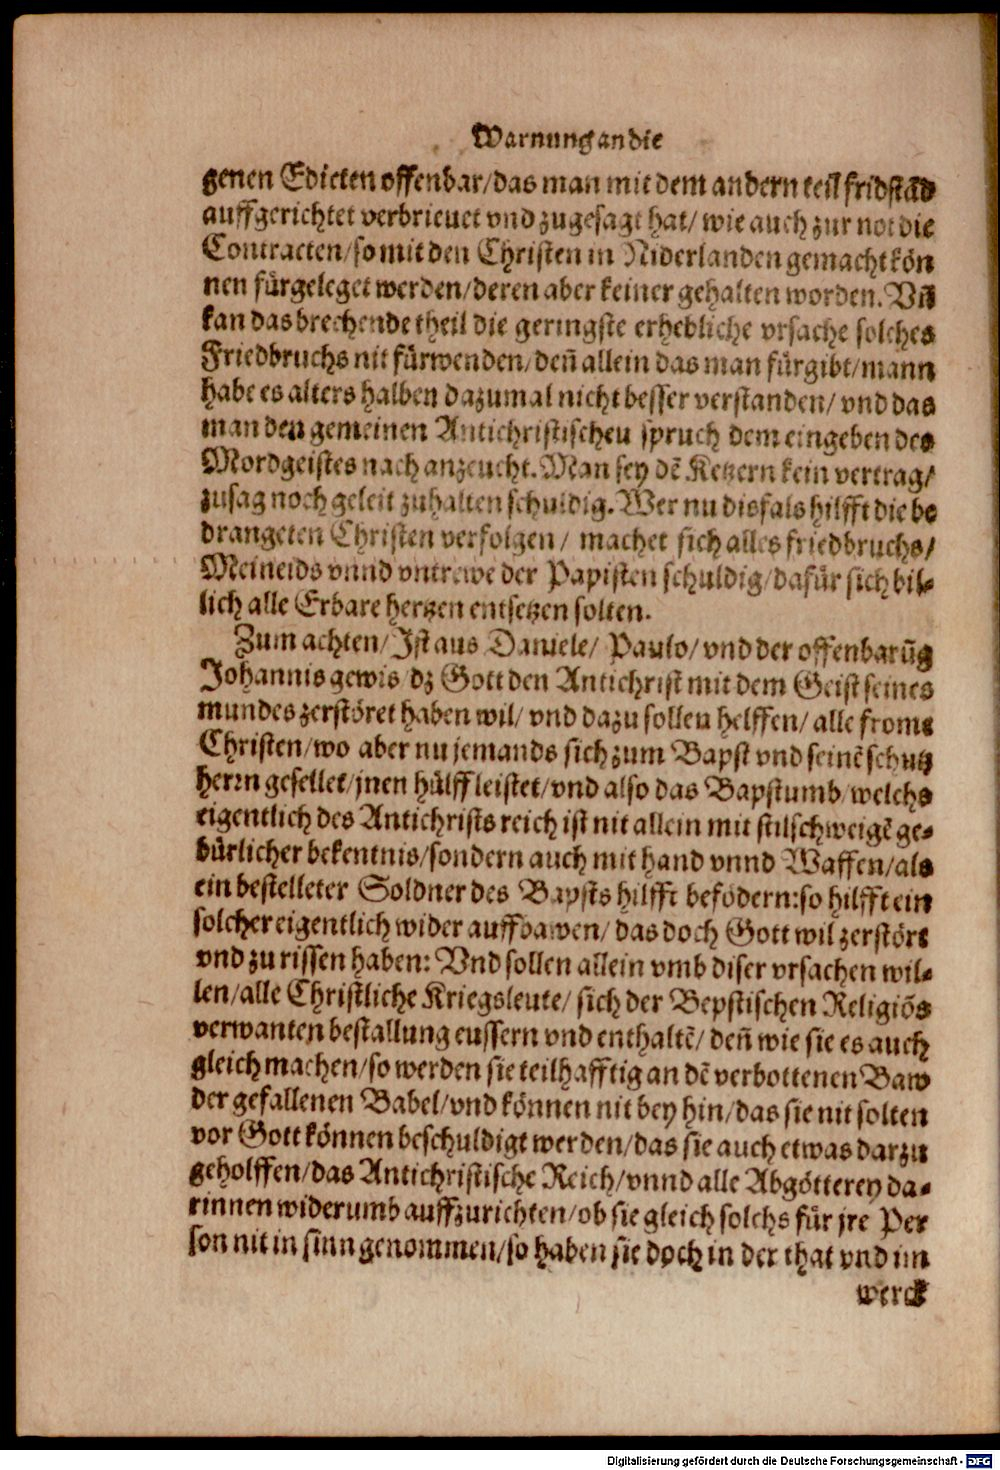 Warnung an die
genen Edicten offenbar/das man mit dem andern teil fridstād
auffgerichtet verbrieuet vnd zugesagt hat/ wie auch zur not die
Contracten/so mit den Christen in Niderlanden gemacht kön
nen fürgeleget werden/deren aber keiner gehalten worden. Vñ
kan das brechende theil die geringste erhebliche vrsache solches
Friedbruchs nit fürwenden/deñ allein das man fürgibt/mann
habe es alters halben dazumal nicht besser verstanden/ vnd das
man den gemeinen Antichristischeu spruch dem eingeben des
Mordgeistes nach anzeucht. Man sey dē Ketzern kein vertrag/
zusag noch geleit zuhalten schuldig. Wer nu disfals hilfft die be
drangeten Christen verfolgen/ machet sich alles friedbruchs/
Meineids vnnd vntrewe der Papisten schuldig/dafür sich bil-
lich alle Erbare hertzen entsetzen solten.
Zum achten/ Ist aus Daniele/ Paulo/ vnd der offenbarūg
Johannis gewis/dz Gott den Antichrist mit dem Geist seines
mundes zerstöret haben wil/ vnd dazu sollen helffen/ alle frome
Christen/wo aber nu jemands sich zum Bapst vnd seinē schutz
herrn gesellet/jnen hülff leistet/vnd also das Bapstumb/welchs
eigentlich des Antichrists reich ist nit allein mit stilschweigē ge-
bürlicher bekentnis/sondern auch mit hand vnnd Waffen/als
ein bestelleter Soldner des Bapsts hilfft befödern:so hilfft ein
solcher eigentlich wider auffbawen/ das doch Gott wil zerstört
vnd zu rissen haben: Vnd sollen allein vmb diser vrsachen wil-
len/alle Christliche Kriegsleute/ sich der Bepstischen Religiōs
verwanten bestallung eussern vnd enthaltē/ deñ wie sie es auch
gleich machen/so werden sie teilhafftig an dē verbottenen Baw
der gefallenen Babel/vnd können nit bey hin/das sie nit solten
vor Gott können beschuldigt werden/das sie auch etwas darzu
geholffen/das Antichristische Reich/vnnd alle Abgötterey da-
rinnen widerumb auffzurichten/ob sie gleich solchs für jre Per
son nit in sinn genommen/so haben sie doch in der that vnd im
werck
Digitalisierung gefördert durch die Deutsche Forschungsgemeinschaft - DFG